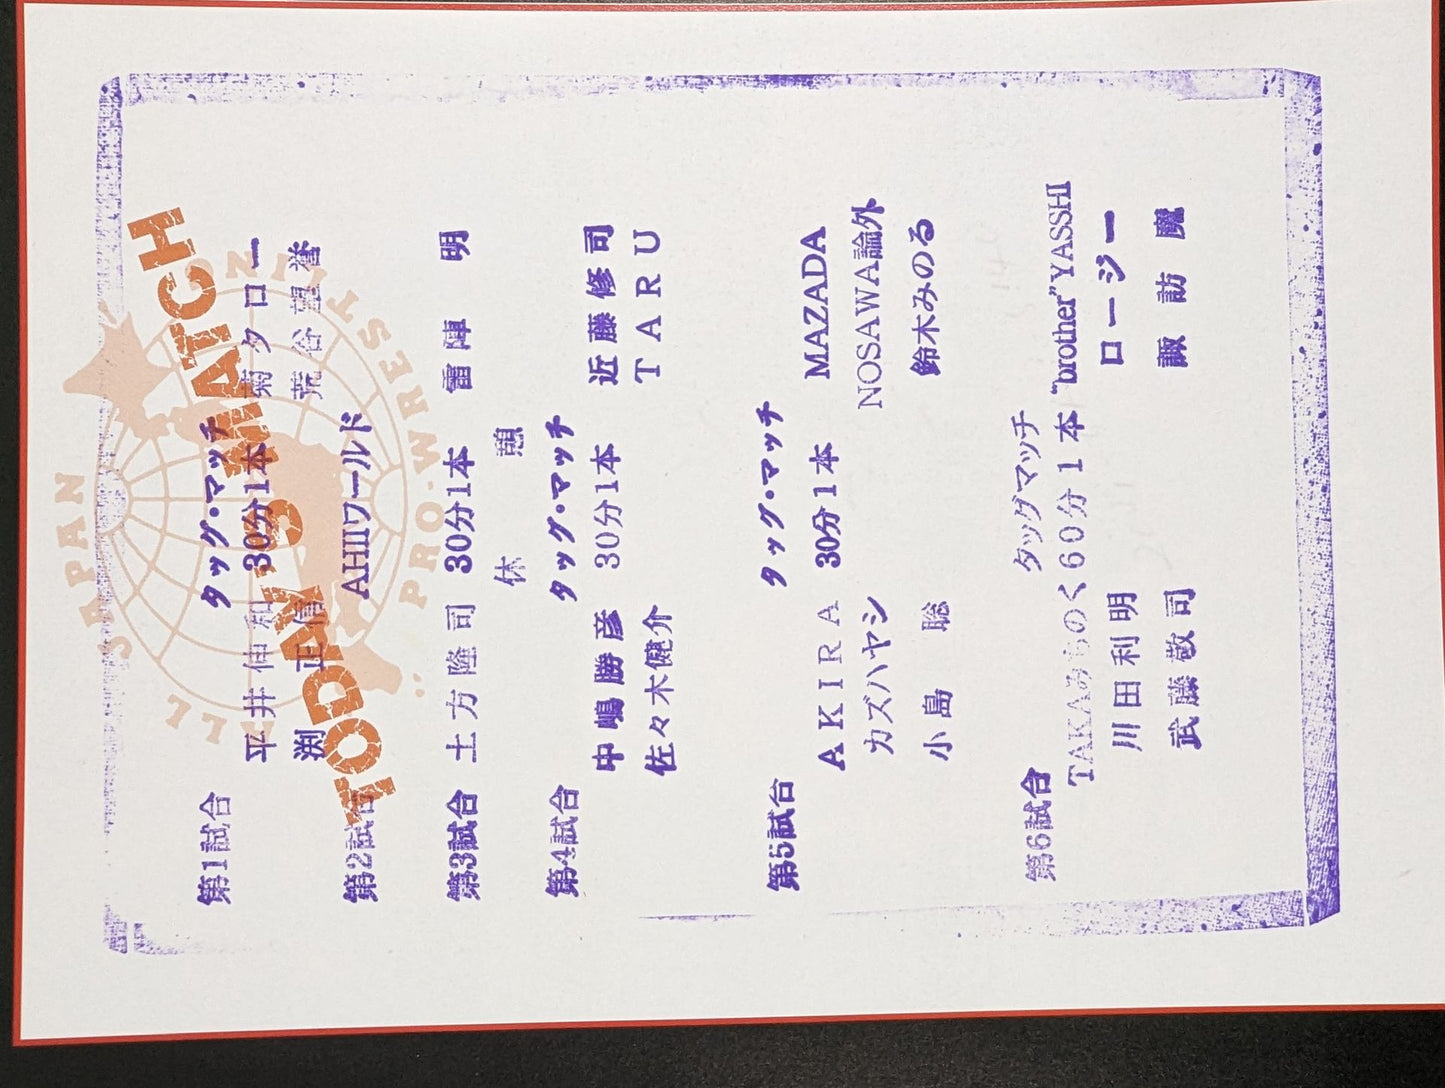 ALL JAPAN PRO-WRESTLING
TODAY'S MATCH
第1試合 タッグ・マッチ
平井伸和 30分1本 菊タロー
渕 正信 荒谷望誉
第2試合 AHIIワールド
第3試合 土方隆司 30分1本 雷陣 明
休 憩
第4試合 タッグ・マッチ
中嶋勝彦 30分1本 近藤修司
佐々木健介 TARU
第5試合 タッグ・マッチ
AKIRA 30分1本 MAZADA
カズハヤシ NOSAWA論外
小島 聡 鈴木みのる
第6試合 タッグマッチ
TAKAみちのく 60分1本 "brother"YASSHI
川田利明 ロージー
武藤敬司 諏訪魔